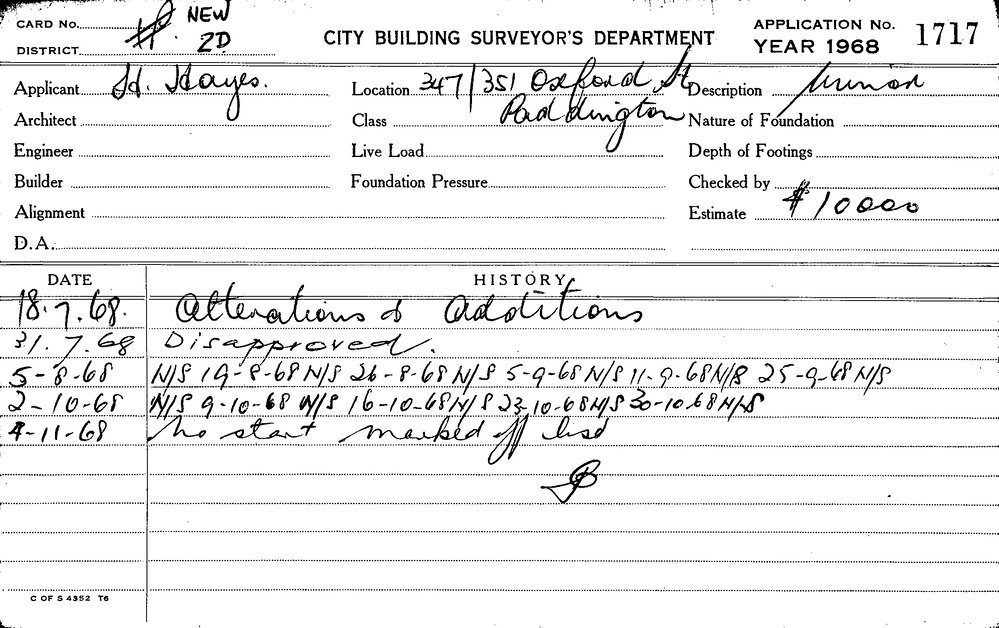 CARD No. NEW
DISTRICT 2D
CITY BUILDING SURVEYOR'S DEPARTMENT
APPLICATION No. 1717
YEAR 1968
Applicant H. Hayes. Location 347/351 Oxford St Description Minor
Architect Class Paddington Nature of Foundation
Engineer Live Load Depth of Footings
Builder Foundation Pressure Checked by
Alignment Estimate $10000
D.A.
DATE HISTORY
18.7.68. Alterations & Additions
31.7.68 Disapproved.
5-8-68 N/S 19-8-68 N/S 26-8-68 N/S 5-9-68 N/S 11-9-68 N/S 25-9-68 N/S
2-10-68 N/S 9-10-68 N/S 16-10-68 N/S 23-10-68 N/S 30-10-68 N/S
4-11-68 No start marked off list
C OF S 4352 T6